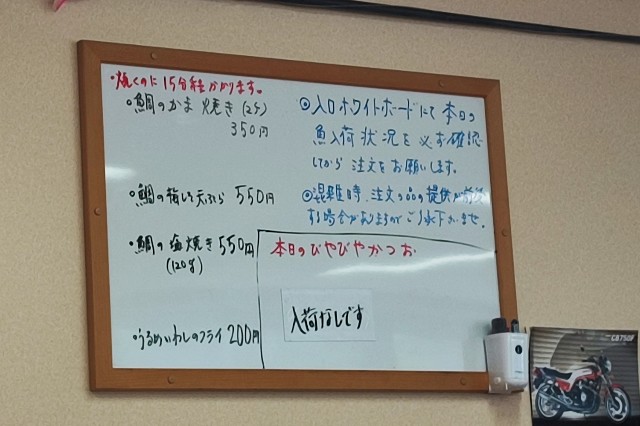 ・焼くのに15分程かかります。
・鯛のかま焼き(2ケ)
350円
・鯛の梅しそ天ぷら 550円
・鯛の塩焼き 550円
(120g)
・うるめいわしのフライ 200円
◎入口ホワイトボードにて本日の
魚入荷状況を必ず確認
してから注文をお願いします。
◎混雑時、注文の品の提供が前後
する場合がありますがご了承下さいませ。
本日のびやびやかつお
入荷なしです
CB750F